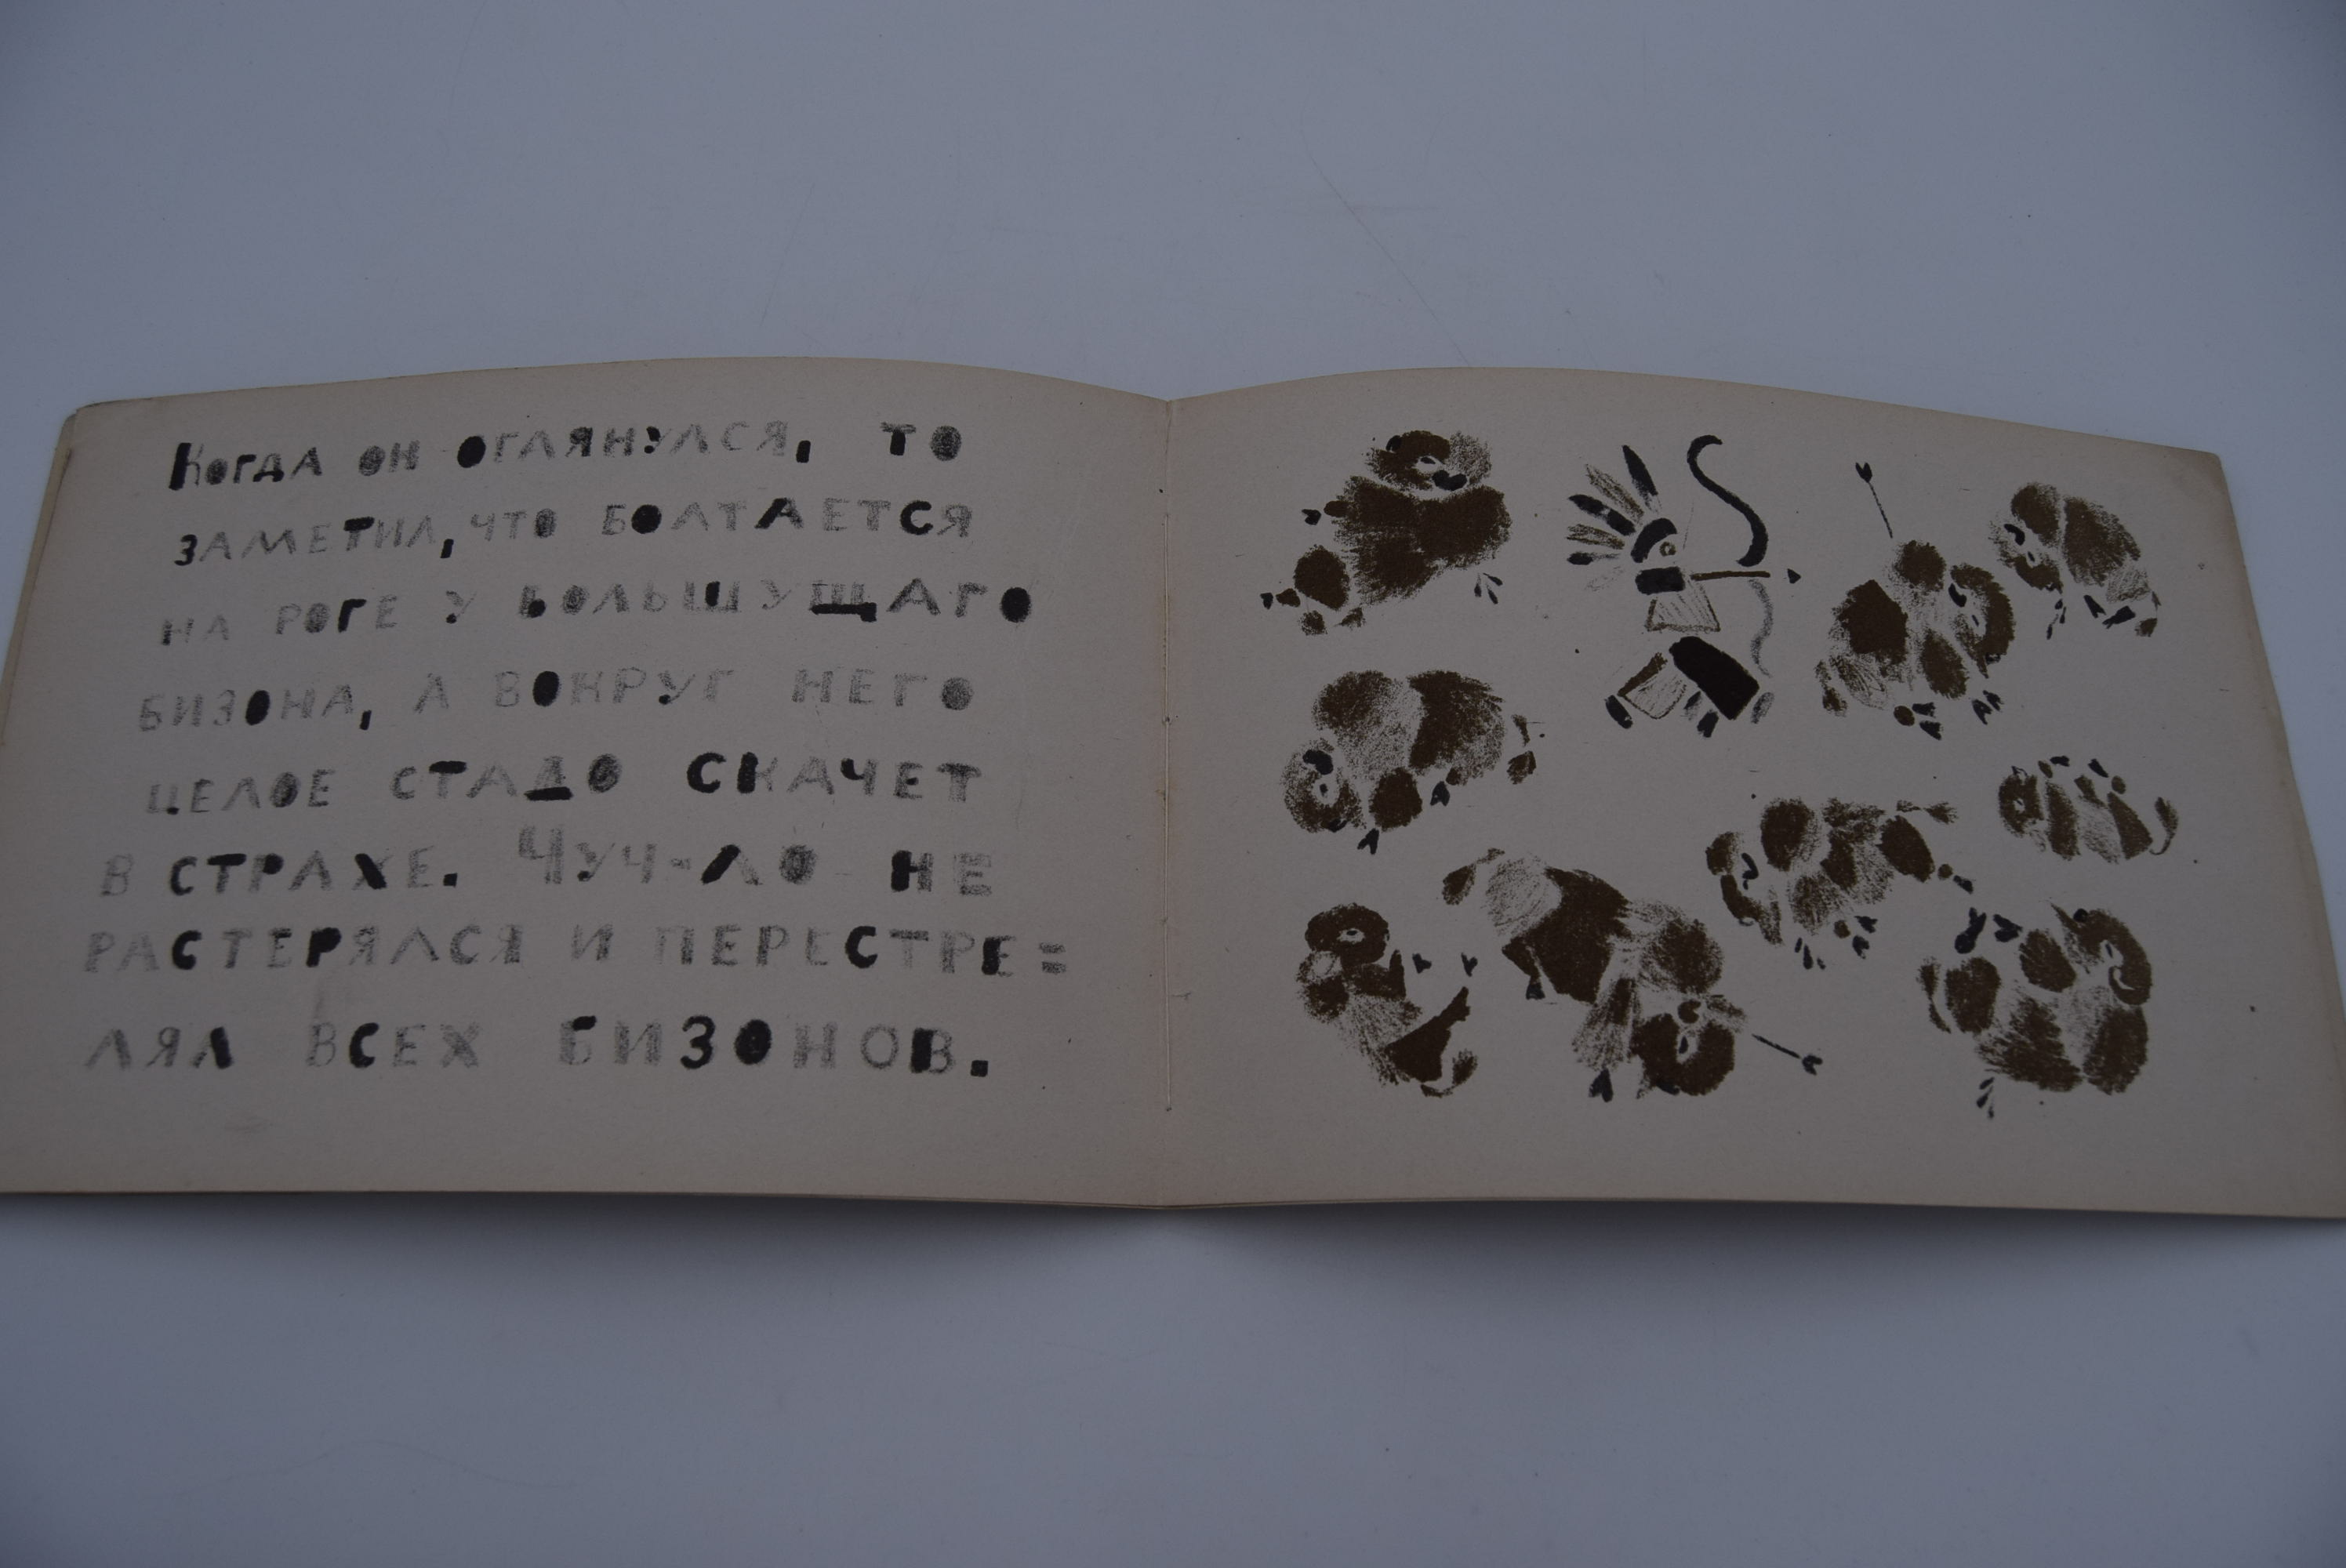 Когда он оглянулся, то
заметил, что болтается
на роге у большущаго
бизона, а вокруг него
целое стадо скачет
в страхе. Чуч-ло не
растерялся и перестре=
лял всех бизонов.